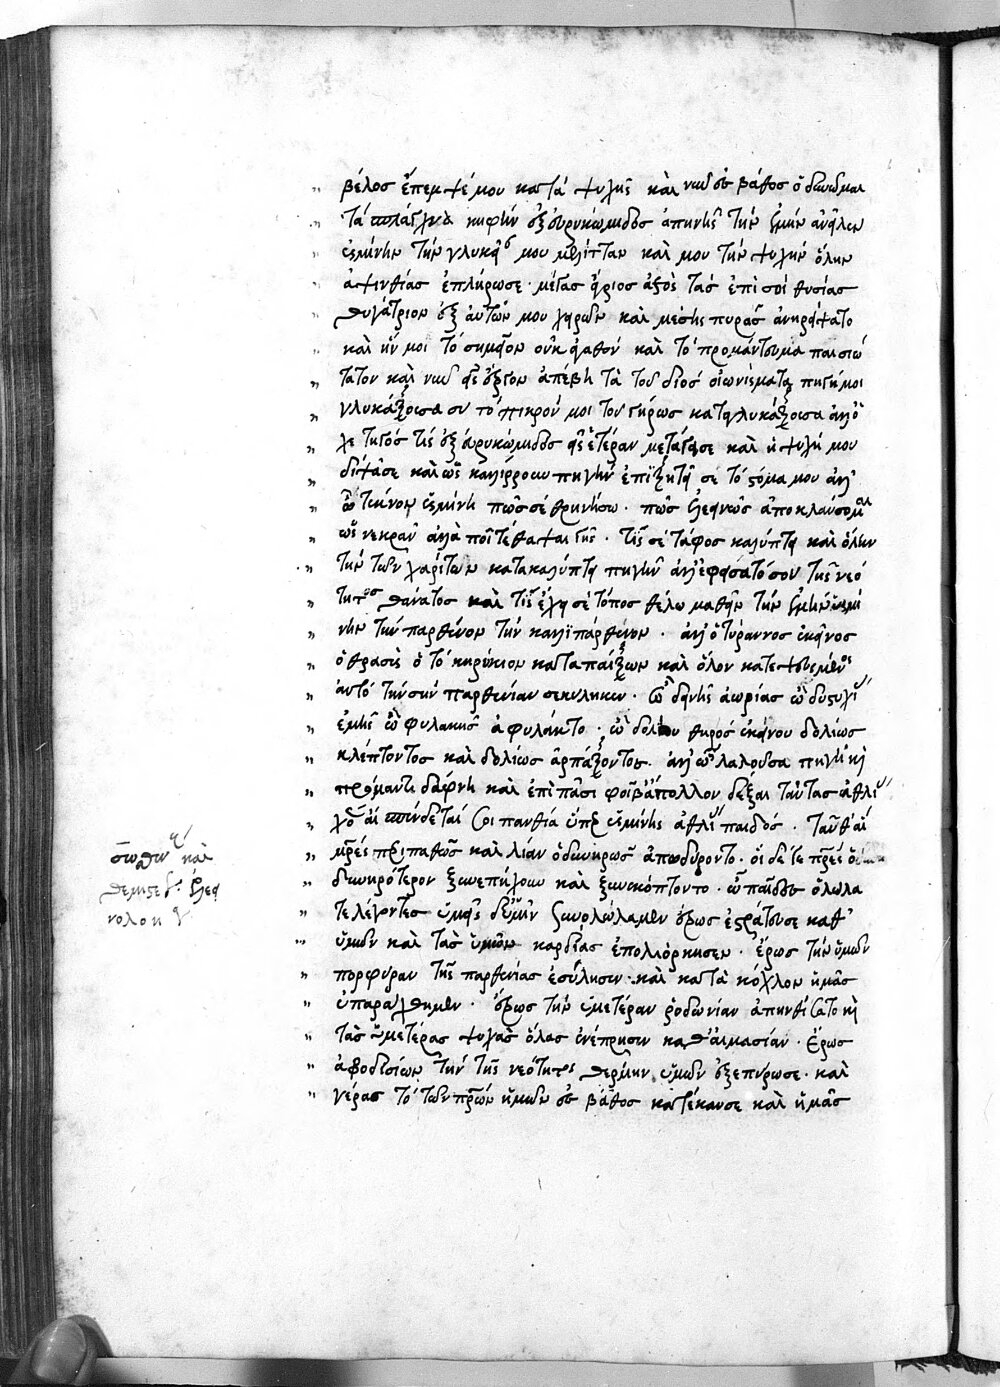 βέλος ἔπεμψέ μου κατὰ ψυχῆς καὶ νῦν ἐς βάθος ὀδυνῶμαι
τὰ σπλάγχνα κηφὴν ἐξ εὐρυκώμιδος ἀπηνὴς τὴν ἐμὴν ἀνεῖλεν
ὑσμίνην τὴν γλυκεῖάν μου μέλιτταν καὶ μου τὴν ψυχὴν ὅλην
ἀψινθίας ἐπλήρωσε · μέγας ἄγριος ἀετὸς τὰς ἐπὶ σοὶ θυσίας
θυγάτριον ἐξ αὐτῶν μου χειρῶν καὶ μέσης πυρᾶς ἀνηρπάσατο
καὶ ἦν μοι τὸ σημεῖον οὐκ ἀγαθὸν καὶ τὸ προμάντευμα παισιώ
τατον καὶ νῦν εἰς ἔργον ἀπέβη τὰ τοῦ διὸς οἰωνίσματα πηγή μοι
γλυκάζουσα σὺ τὸ πικρόν μοι τοῦ γήρως καταγλυκάζουσα ἀλλ' ὀ
χετηγός τις ἐξ εὐρυκώμιδος εἰς ἑτέραν μετήγαγε καὶ ἡ ψυχή μου
διψᾶσε καὶ ὡς καλλίρρουν πηγὴν ἐπιζητεῖ σε τὸ στόμα μου ἀλλ'
ὦ τέκνον ὑσμίνη πῶς σε θρηνήσω · πῶς ἐλεεινῶς ἀποκλαύσομαι
ὡς νεκρὰν ἀλλὰ ποῖ τέθαψαι γῆς · τίς σε τάφος καλύπτει καὶ ὅλην
τὴν τῶν χαρίτων κατακαλύπτει πηγὴν ἀλλ' ἐφείσατό σου τῆς νεό
τητος θάνατος καὶ τίς ἔχει σε τόπος θέλω μαθεῖν τὴν ἐμὴν ὑσμί
νην τὴν παρθένον τὴν καλλιπάρθενον · ἀλλ' ὁ τύραννος ἐκεῖνος
ὁ θρασὺς ὁ τὸ κηρύκιον καταπαίζων καὶ ὅλον κατεψευσμένος
αὐτὸ τὴν σὴν παρθενίαν σεσύληκεν · ὢ δεινῆς ἀωρίας ὢ δυστυχίας
ἐμῆς ὢ φυλακῆς ἀφυλάκτου · ὢ δολίου θηρὸς ἐκείνου δολίως
κλέπτοντος καὶ δολίως ἁρπάζοντος · ἀλλ' ὢ λαλοῦσα πηγὴ καὶ
πρόμαντι δάφνη καὶ ἐπὶ πᾶσι φοῖβ' ἄπολλον δέξαι ταύτας ἀθλίας
χοὰς αἳ σπένδεταί σοι πανθία ὑπὲρ ὑσμίνης ἀθλίας παιδός · ταῦθ' αἱ
μητέρες περιπαθῶς καὶ λίαν ὀδυνηρῶς ἀπωδύροντο · οἱ δέ γε πατέρες
ὀδυνηρότερον ξυνεπήχουν καὶ ξυνεκόπτοντο · ὦ παῖδες ὄλωλα
τε λέγοντες ὑμεῖς δ' ἡμῖν ξυνολώλαμεν ἔρως ἐστράτευσε καθ'
ὑμῶν καὶ τὰς ὑμῶν καρδίας ἐπολιόρκησεν · ἔρως τὴν ὑμῶν
πορφύραν τῆς παρθενίας ἐσύλησεν · καὶ κατὰ κόχλον ἡμᾶς
ὑπαρά χθημεν · ἔρως τὴν ὑμετέραν ῥοδωνίαν ἀπηνθίσατο καὶ
τὰς ἡμετέρας ψυχὰς ὅλας ἐνέπρησεν καθ' αἱμασίαν · ἔρως
ἀφροδισίων τὴν τῆς νεότητος θέρμην ὑμῶν ἐξεπύρωσε · καὶ
γέρας τὸ τῶν πατέρων ἡμῶν ἐς βάθος κατέκαυσε καὶ ἡμᾶς